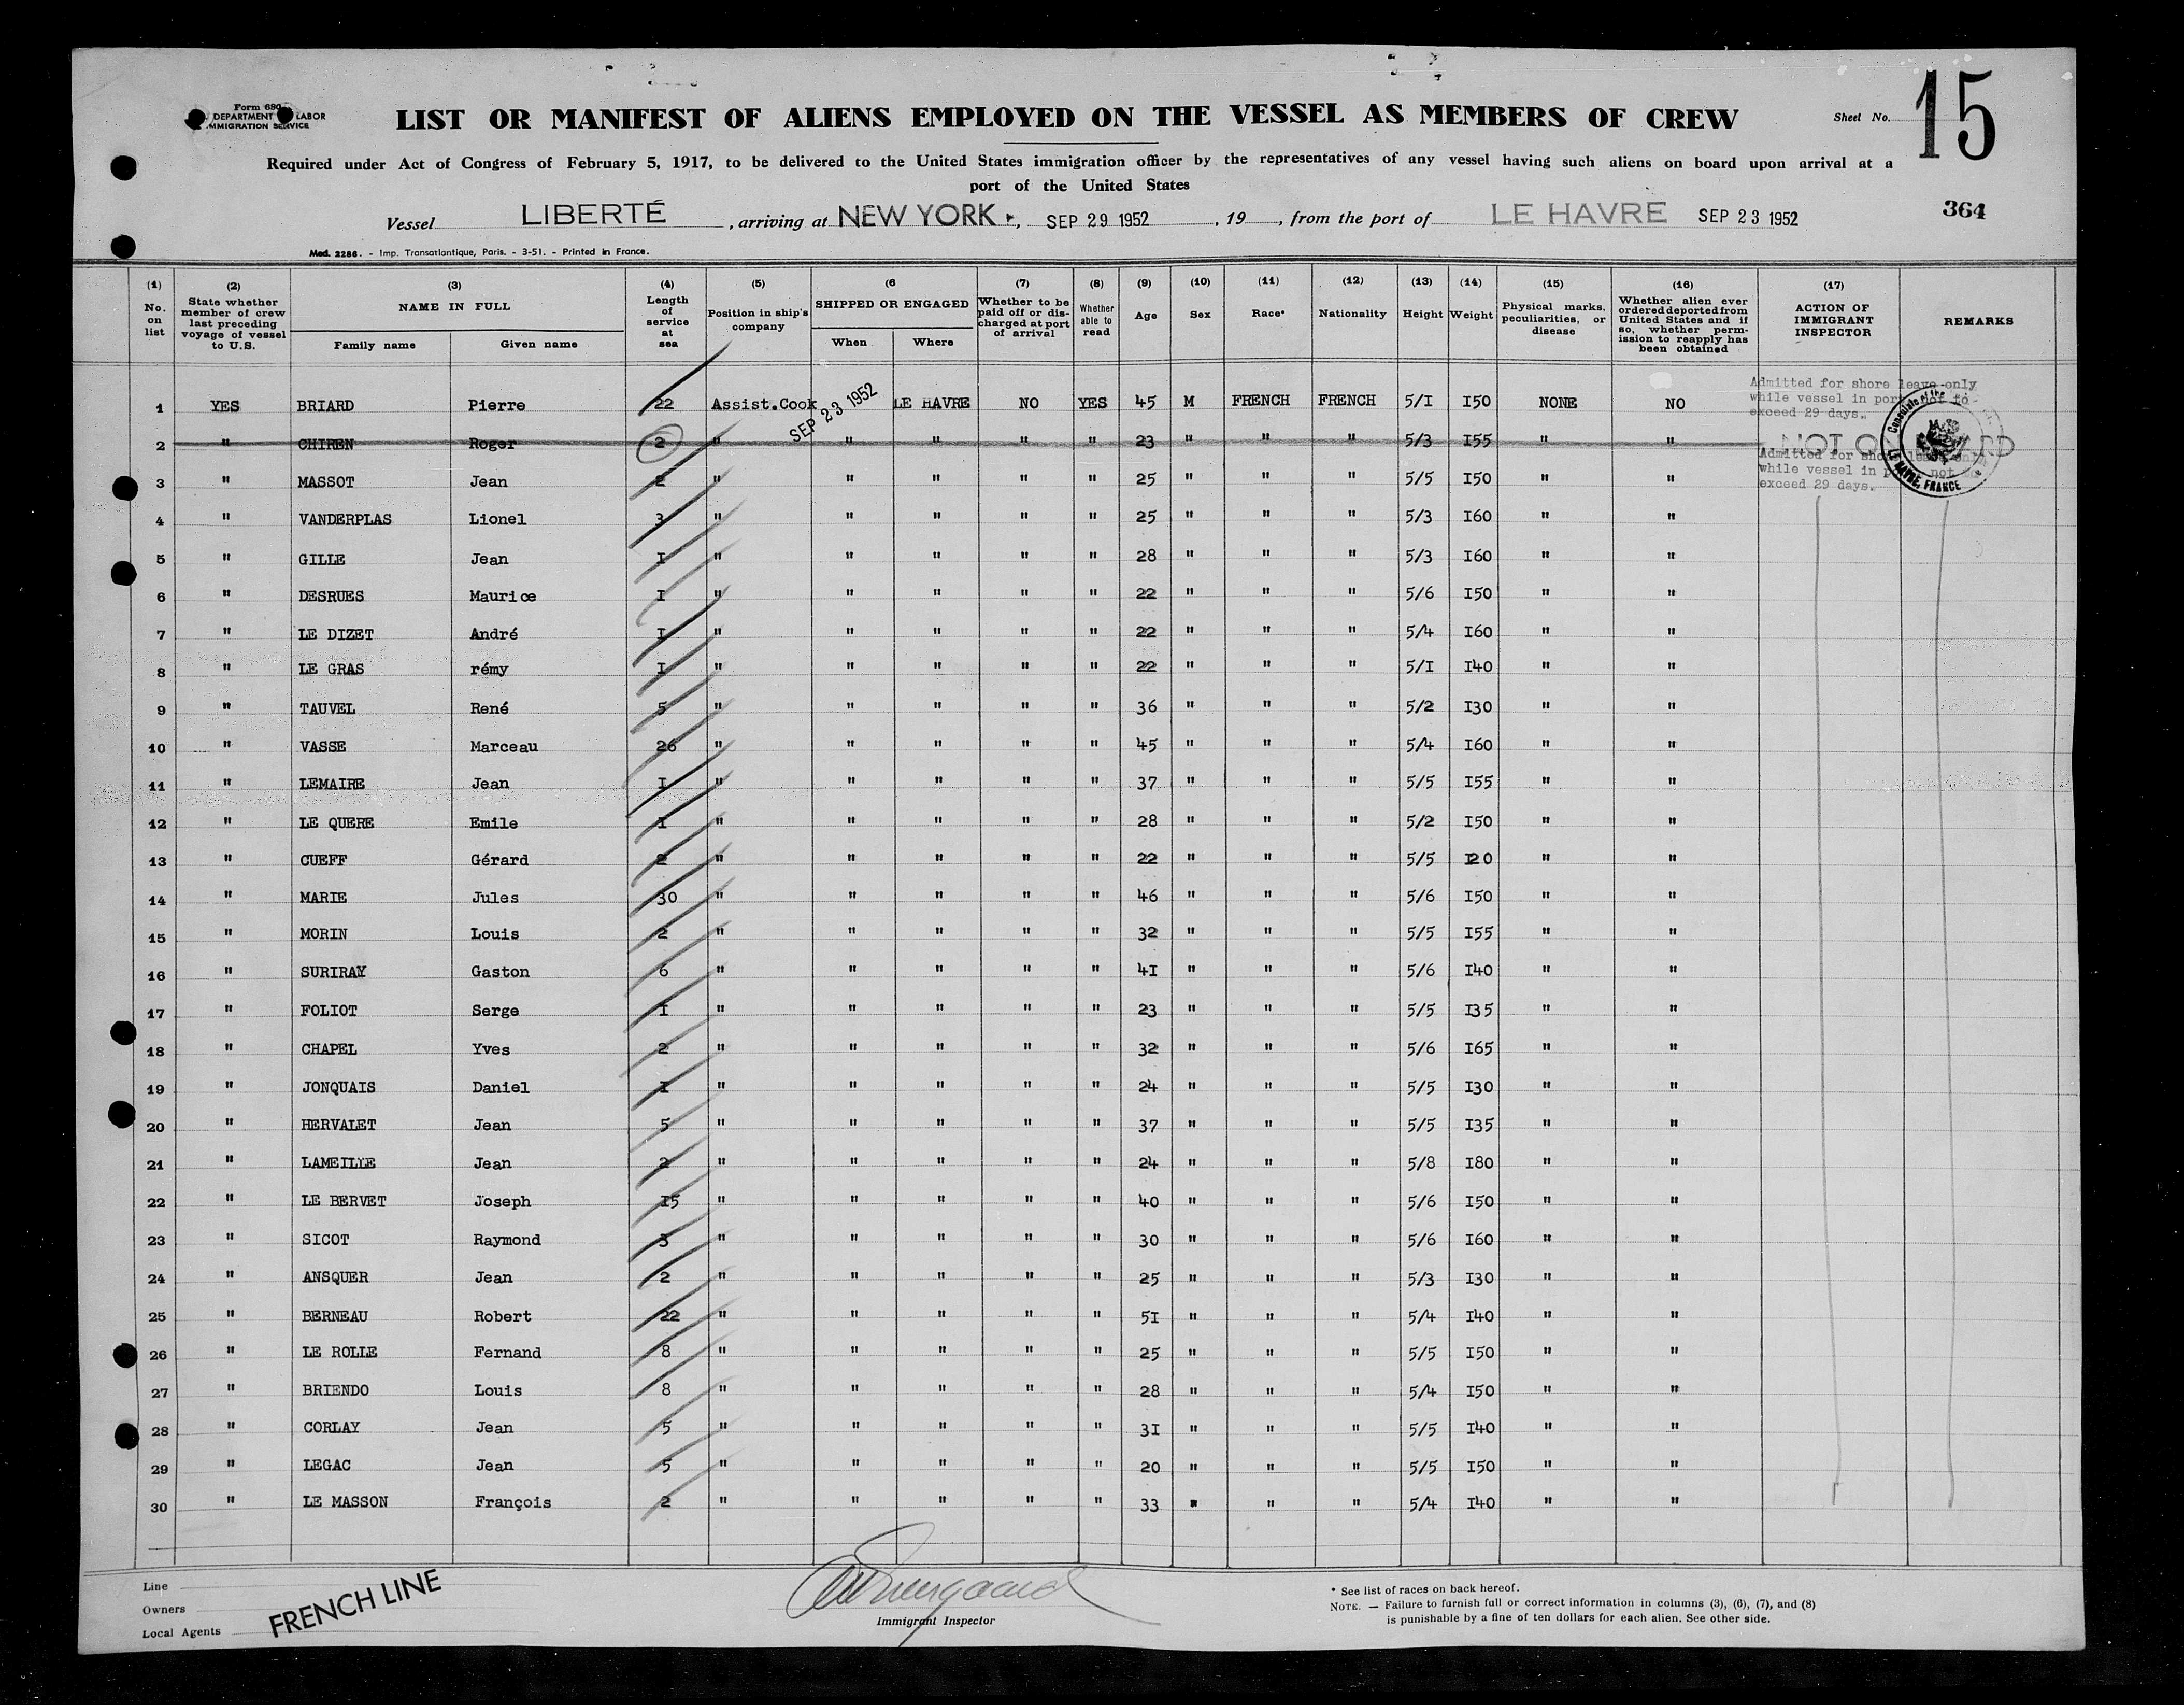 Form 680
DEPARTMENT LABOR
IMMIGRATION SERVICE
LIST OR MANIFEST OF ALIENS EMPLOYED ON THE VESSEL AS MEMBERS OF CREW
Sheet No. 15
Required under Act of Congress of February 5, 1917, to be delivered to the United States immigration officer by the representatives of any vessel having such aliens on board upon arrival at a
port of the United States
Vessel LIBERTÉ, arriving at NEW YORK, SEP 29 1952, 19, from the port of LE HAVRE SEP 23 1952
364
Mod. 2286. - Imp. Transatlantique, Paris. - 3-51. - Printed in France.
(1) No. on list (2) State whether member of crew last preceding voyage of vessel to U.S. (3) NAME IN FULL Family name Given name (4) Length of service at sea (5) Position in ship's company (6 SHIPPED OR ENGAGED When Where (7) Whether to be paid off or discharged at port of arrival (8) Whether able to read (9) Age (10) Sex (11) Race* (12) Nationality (13) Height (14) Weight (15) Physical marks, peculiarities, or disease (16) Whether alien ever ordered deported from United States and if so, whether permission to reapply has been obtained (17) ACTION OF IMMIGRANT INSPECTOR REMARKS
1 YES BRIARD Pierre 22 Assist.Cook SEP 23 1952 LE HAVRE NO YES 45 M FRENCH FRENCH 5/I I50 NONE NO Admitted for shore leave only while vessel in port not to exceed 29 days.
2 " CHIREN Roger 2 " " " " " 23 " " " 5/3 I55 " " NOT ON BOARD
3 " MASSOT Jean 2 " " " " " 25 " " " 5/5 I50 " " Admitted for shore leave only while vessel in port not exceed 29 days.
LE HAVRE, FRANCE
4 " VANDERPLAS Lionel 3 " " " " " 25 " " " 5/3 I60 " "
5 " GILLE Jean I " " " " " 28 " " " 5/3 I60 " "
6 " DESRUES Maurice I " " " " " 22 " " " 5/6 I50 " "
7 " LE DIZET André I " " " " " 22 " " " 5/4 I60 " "
8 " LE GRAS rémy I " " " " " 22 " " " 5/I I40 " "
9 " TAUVEL René 5 " " " " " 36 " " " 5/2 I30 " "
10 " VASSE Marceau 26 " " " " " 45 " " " 5/4 I60 " "
11 " LEMAIRE Jean I " " " " " 37 " " " 5/5 I55 " "
12 " LE QUERE Emile I " " " " " 28 " " " 5/2 I50 " "
13 " CUEFF Gérard 2 " " " " " 22 " " " 5/5 I20 " "
14 " MARIE Jules 30 " " " " " 46 " " " 5/6 I50 " "
15 " MORIN Louis 2 " " " " " 32 " " " 5/5 I55 " "
16 " SURIRAY Gaston 6 " " " " " 4I " " " 5/6 I40 " "
17 " FOLIOT Serge I " " " " " 23 " " " 5/5 I35 " "
18 " CHAPEL Yves 2 " " " " " 32 " " " 5/6 I65 " "
19 " JONQUAIS Daniel I " " " " " 24 " " " 5/5 I30 " "
20 " HERVALET Jean 5 " " " " " 37 " " " 5/5 I35 " "
21 " LAMEILYE Jean 2 " " " " " 24 " " " 5/8 I80 " "
22 " LE BERVET Joseph I5 " " " " " 40 " " " 5/6 I50 " "
23 " SICOT Raymond 3 " " " " " 30 " " " 5/6 I60 " "
24 " ANSQUER Jean 2 " " " " " 25 " " " 5/3 I30 " "
25 " BERNEAU Robert 22 " " " " " 5I " " " 5/4 I40 " "
26 " LE ROLLE Fernand 8 " " " " " 25 " " " 5/5 I50 " "
27 " BRIENDO Louis 8 " " " " " 28 " " " 5/4 I50 " "
28 " CORLAY Jean 5 " " " " " 3I " " " 5/5 I40 " "
29 " LEGAC Jean 5 " " " " " 20 " " " 5/5 I50 " "
30 " LE MASSON François 2 " " " " " 33 " " " 5/4 I40 " "
Line
Owners
Local Agents
FRENCH LINE
Immigrant Inspector
* See list of races on back hereof.
NOTE. — Failure to furnish full or correct information in columns (3), (6), (7), and (8)
is punishable by a fine of ten dollars for each alien. See other side.